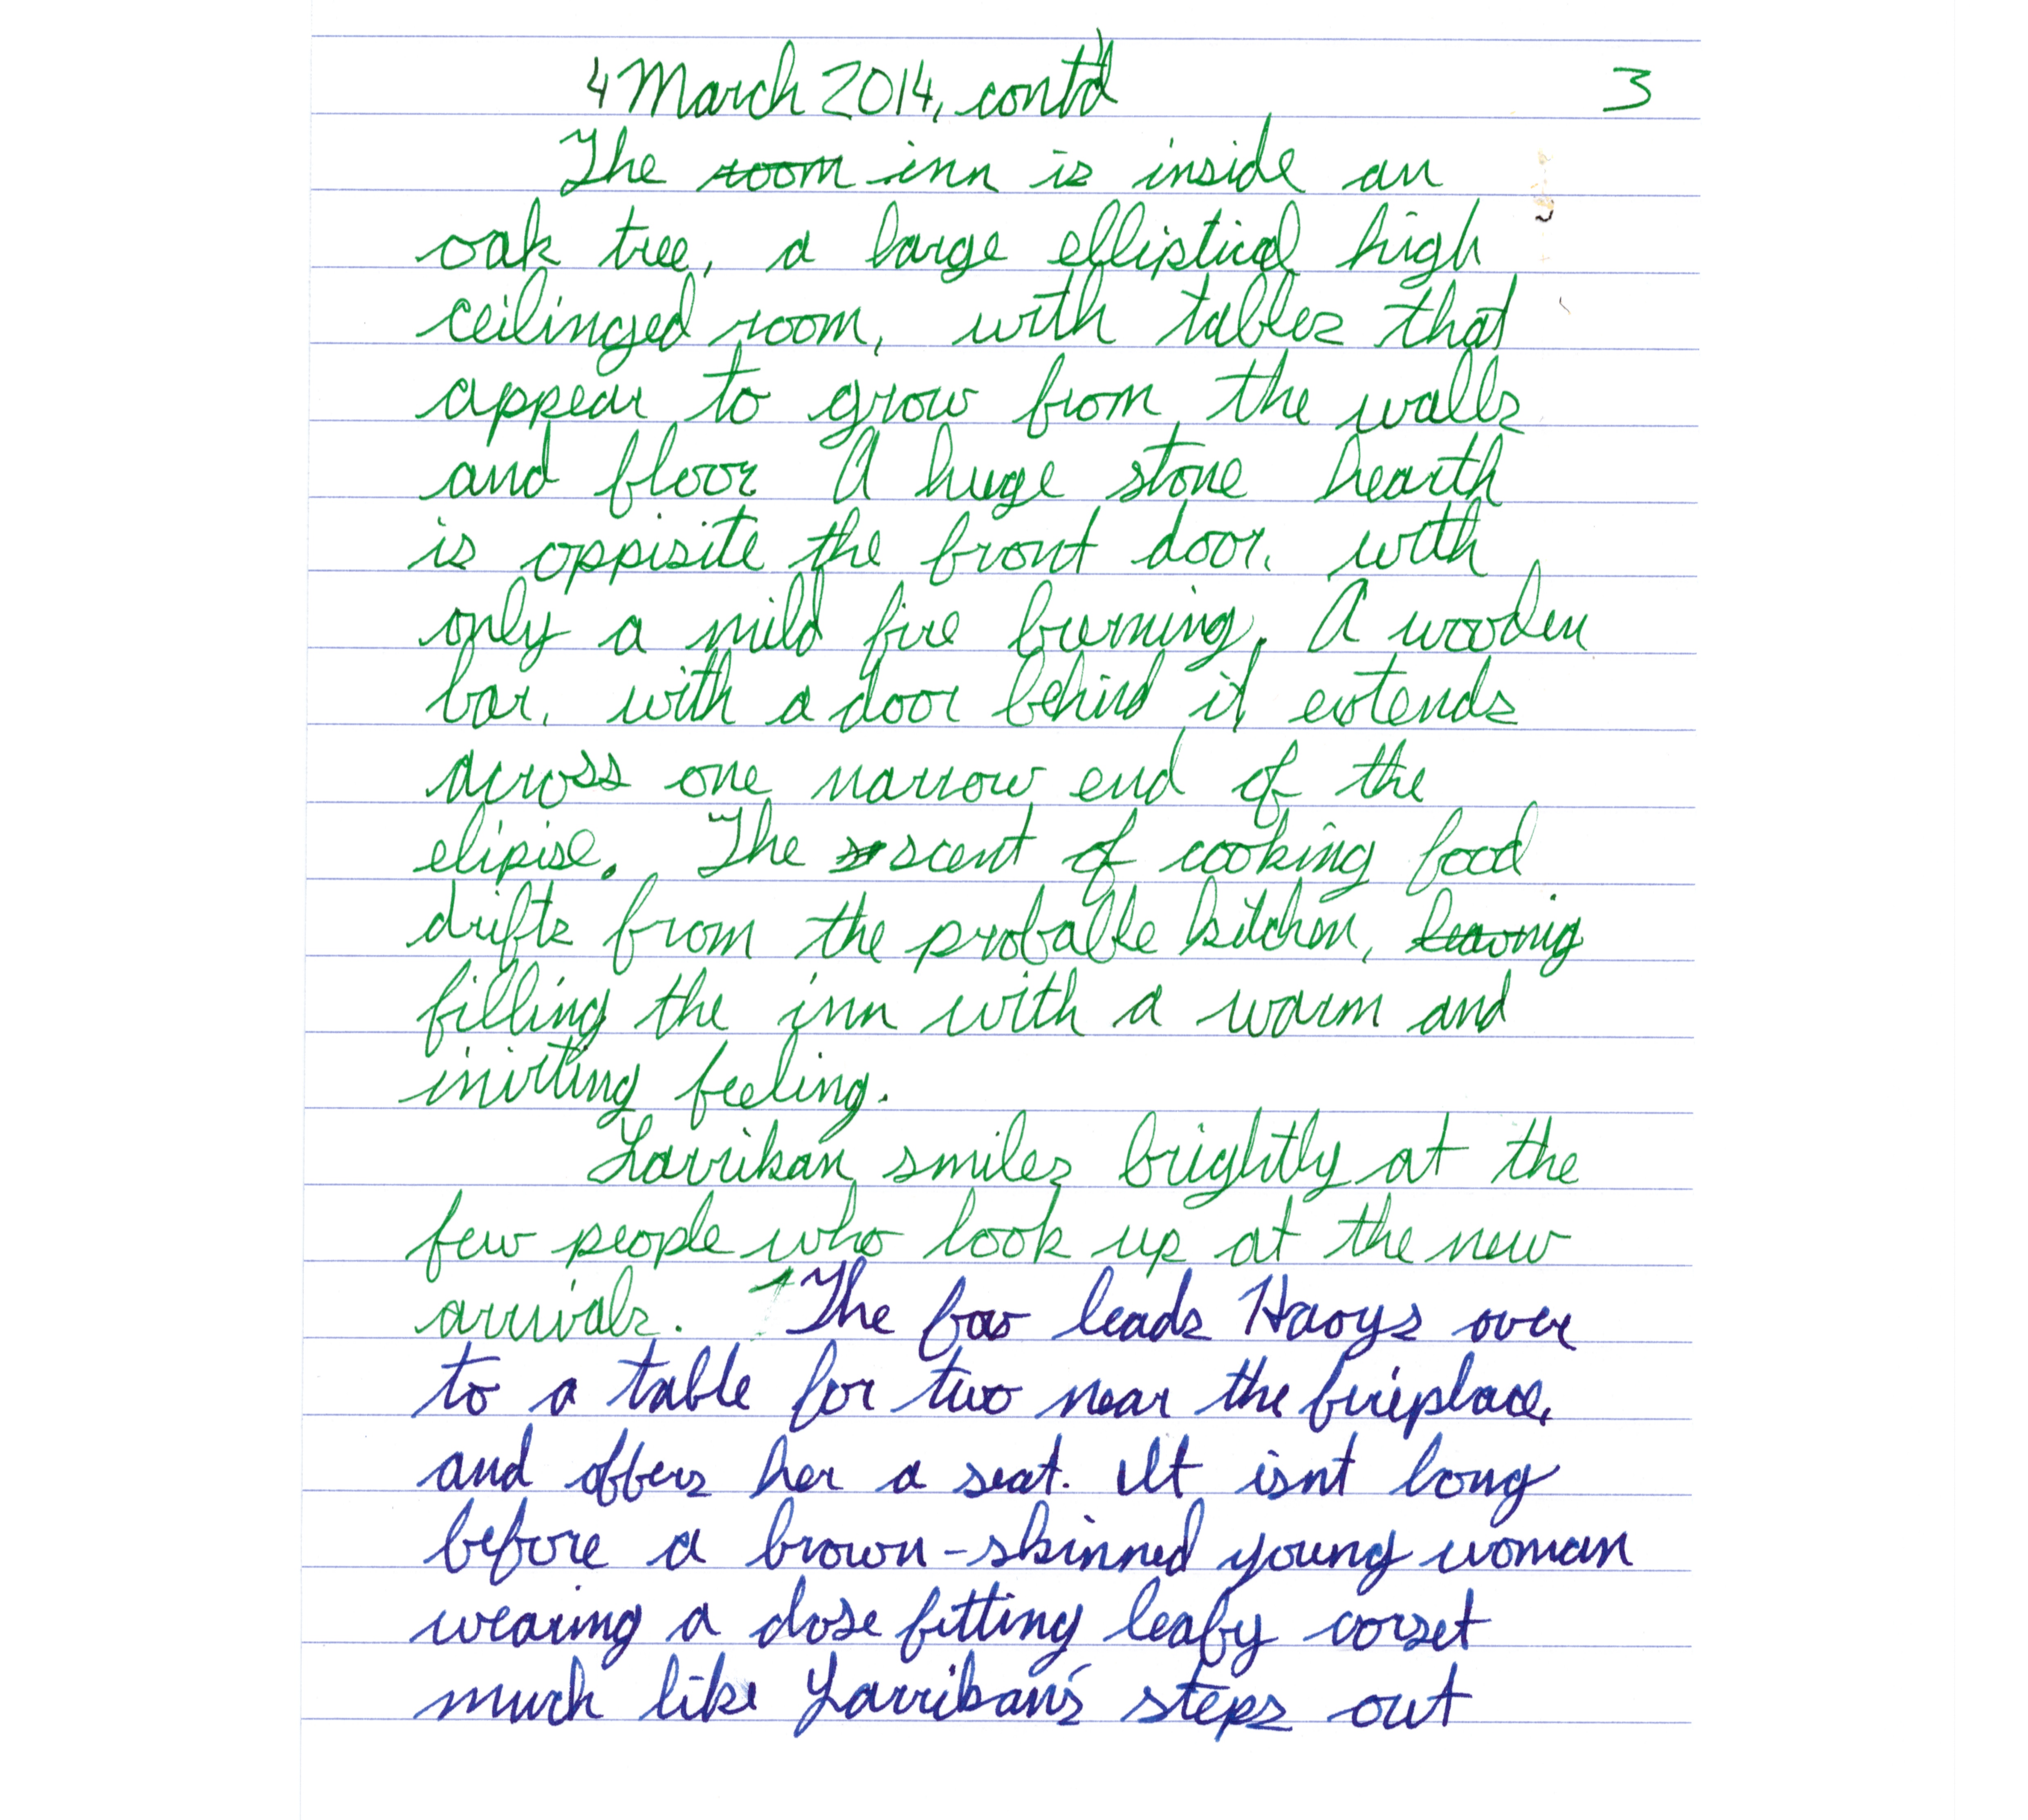 4 March 2014, cont'd 3
The ~~room~~ inn is inside an
oak tree, a large elliptical high
ceilinged room, with tables that
appear to grow from the walls
and floor. A huge stone hearth
is oppisite the front door, with
only a mild fire burning. A wooden
bar, with a door behind it extends
across one narrow end of the
elipise. The scent of cooking food
drifts from the probable kitchen, ~~leaving~~
filling the inn with a warm and
inviting feeling.
Larrikan smiles brightly at the
few people who look up at the new
arrivals. The fox leads Haoys over
to a table for two near the fireplace,
and offers her a seat. It isnt long
before a brown-skinned young woman
wearing a close fitting leafy corset
much like Larrikan's steps out